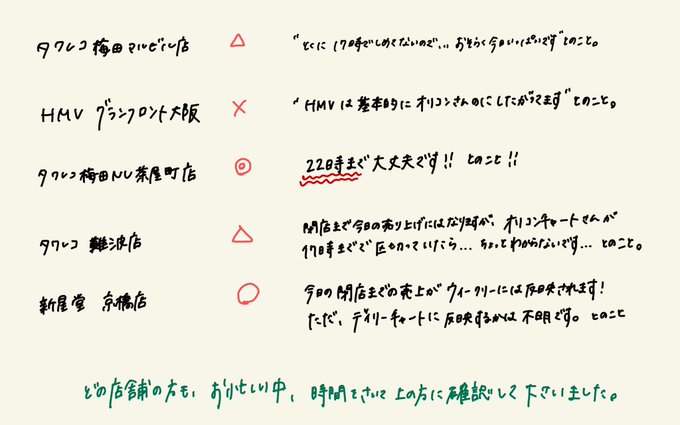 タワレコ 梅田マルビル店 △ "とくに 17時でしめてないので… おそらく今日いっぱいです" とのこと。
HMV グランフロント大阪 × "HMVは基本的にオリコンさんのにしたがってます" とのこと。
タワレコ梅田NU茶屋町店 ◎ 22時まで大丈夫です!! とのこと!!
タワレコ 難波店 △ 閉店まで今日の売り上げにはなりますが、オリコンチャートさんが
17時までで区切っていたら… ちょっとわからないです… とのこと。
新星堂 京橋店 ○ 今日の閉店までの売上がウィークリーには反映されます!
ただ、デイリーチャートに反映するかは不明です。とのこと
どの店舗の方も、お忙しい中、時間をさいて上の方に確認して下さいました。